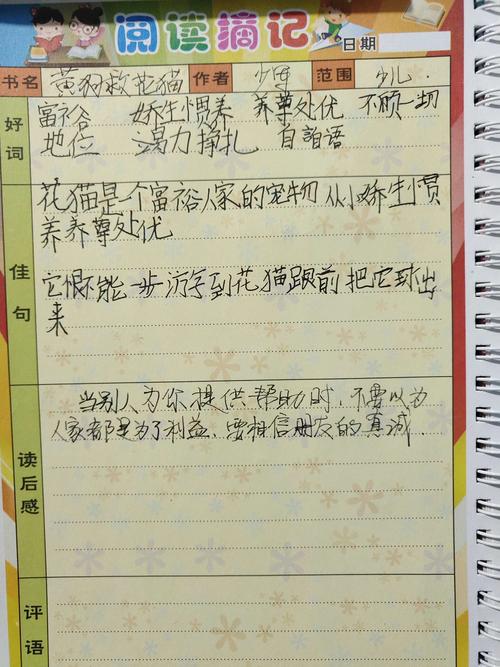 阅读摘记
日期
书名 黄狗救花猫 作者 少年 范围 少儿.
好词
富裕 娇生惯养 养尊处优 不顾一切
地位 竭力挣扎 自言语
佳句
花猫是个富裕人家的宠物从小娇生惯
养养尊处优
它恨不能一步游到花猫跟前把它球出
来
读后感
当别人为你提供帮助时,不要以为
人家都是为了利益,要相信朋友的真诚.
评语